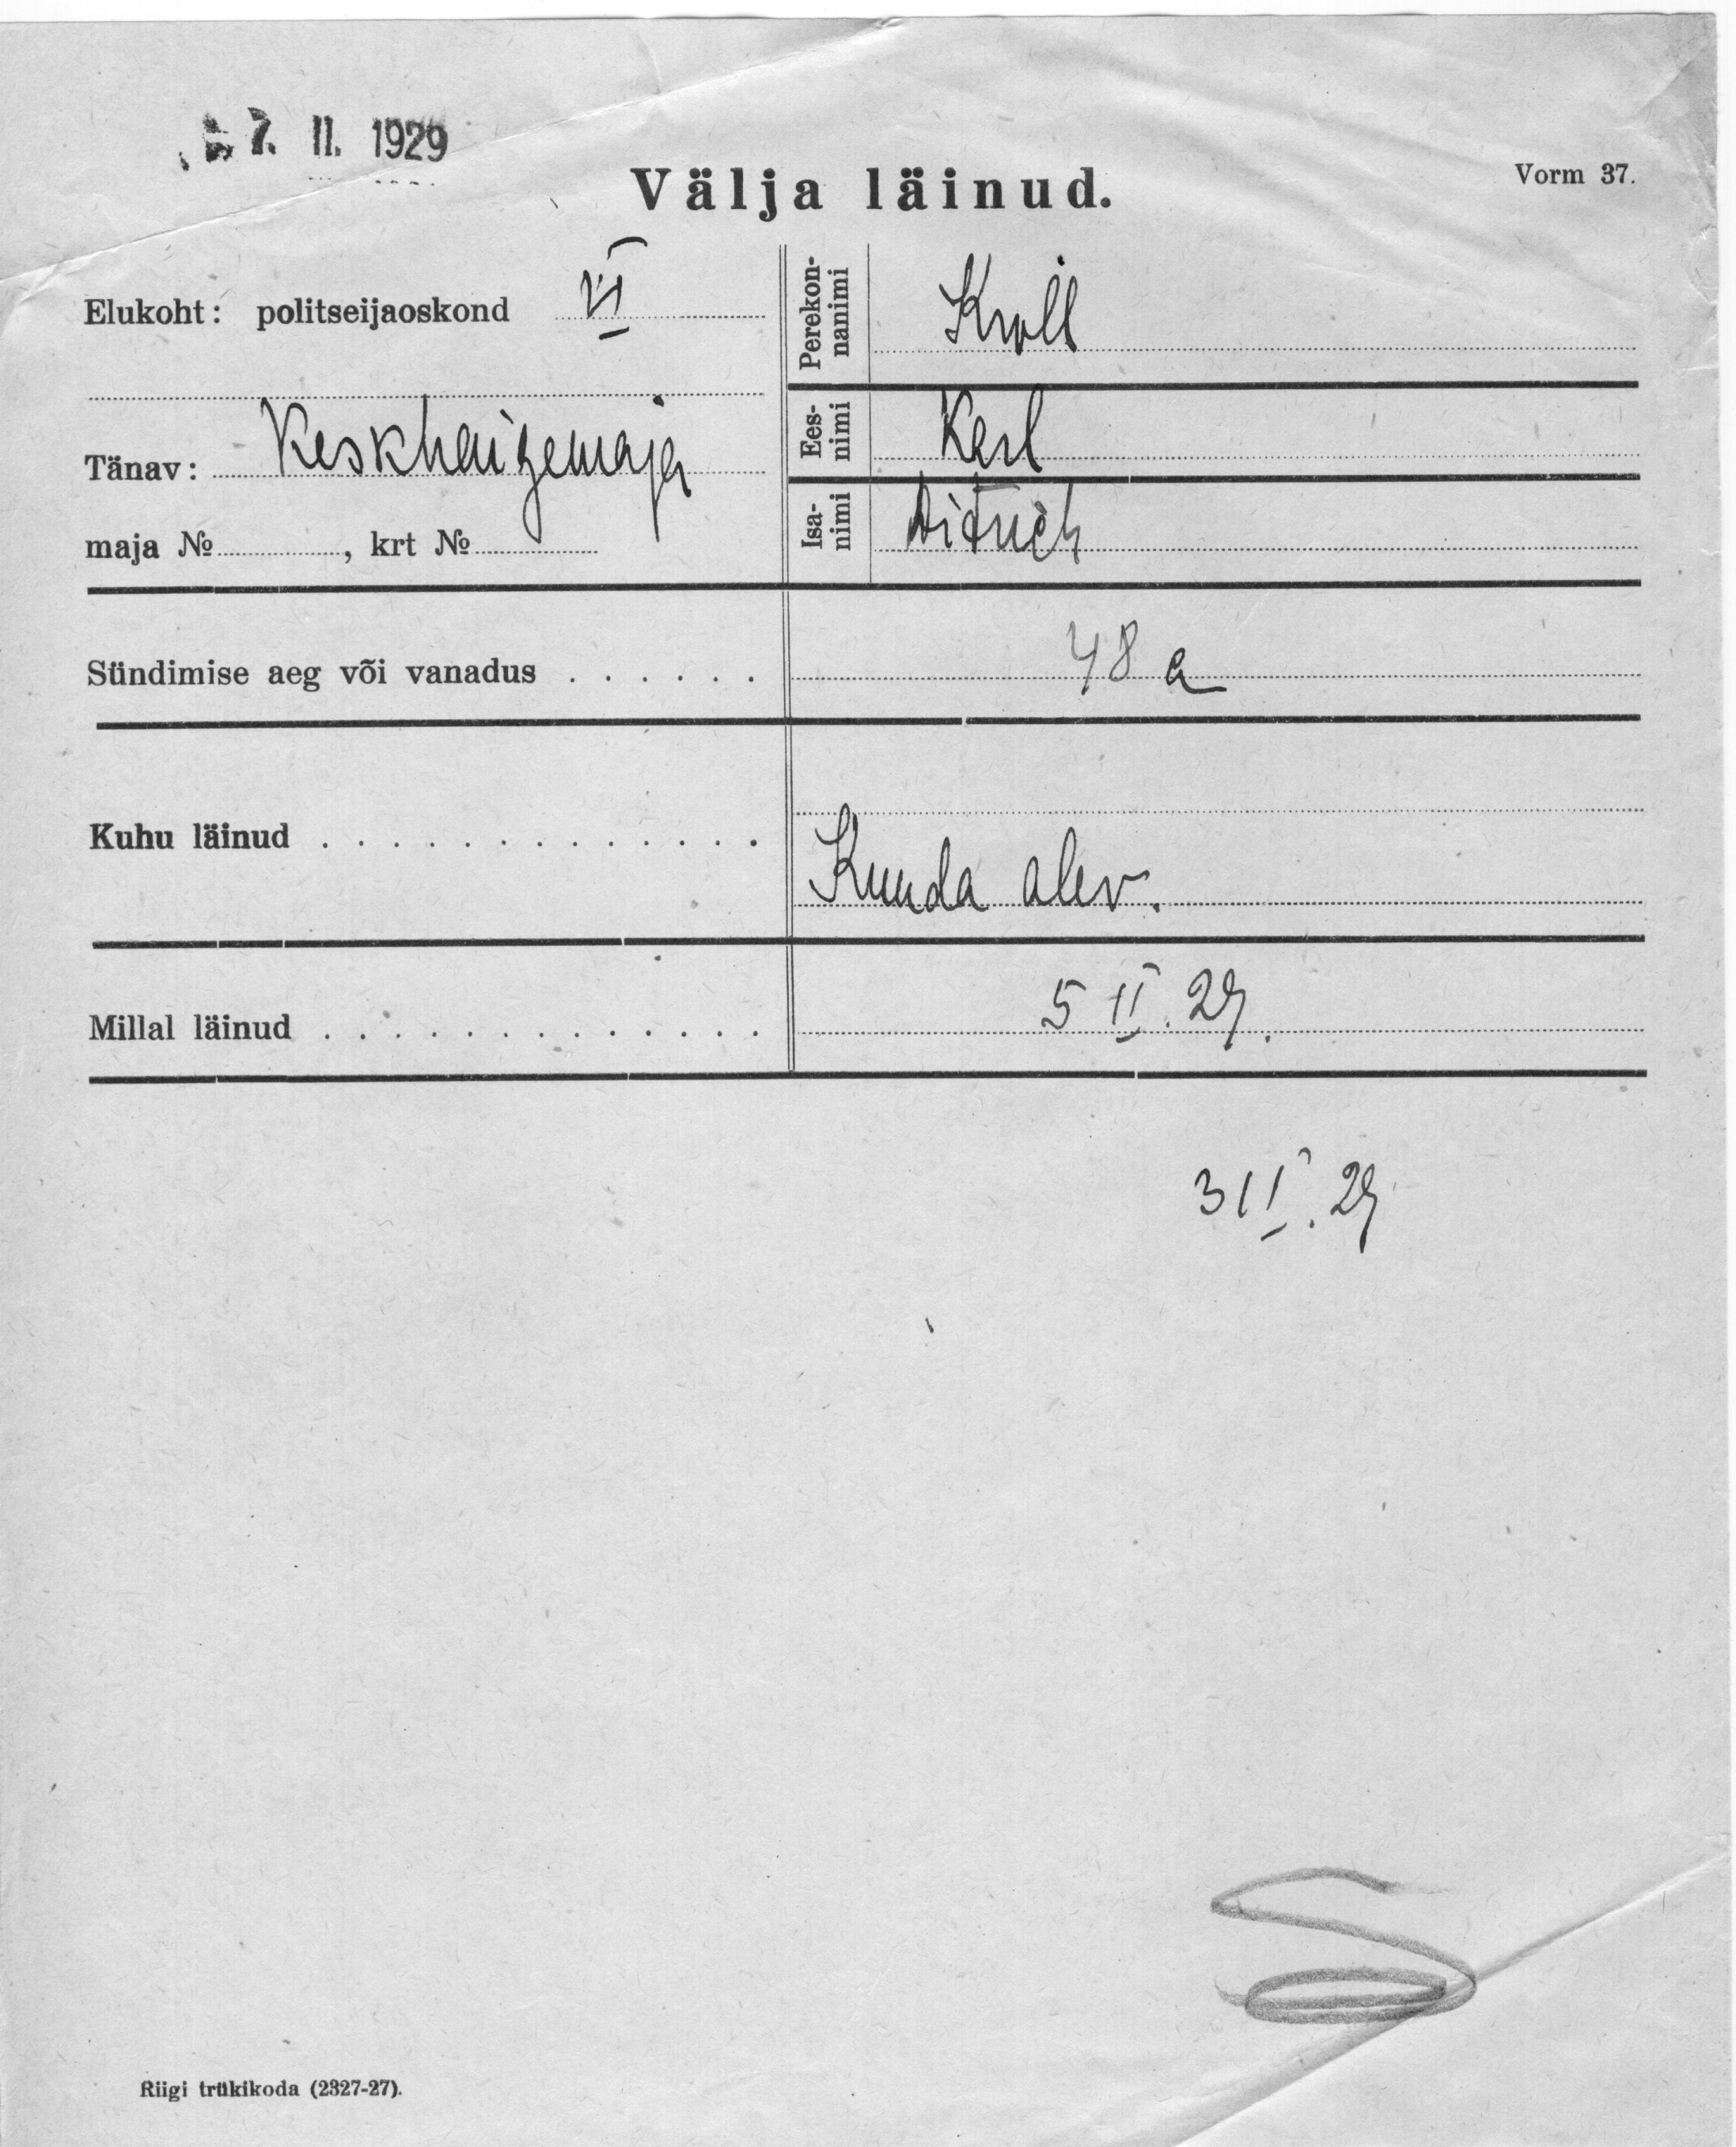 7. II. 1929
Välja läinud.
Vorm 37.
Elukoht: politseijaoskond VI
Tänav: Keskhaigemaja
maja № , krt №
Perekon-
nanimi
Kroll
Ees-
nimi
Karl
Isa-
nimi
Sündimise aeg või vanadus . . . . . . 48 a
Kuhu läinud . . . . . . . . . . . . . Kunda alev.
Millal läinud . . . . . . . . . . . . . 5 II. 29.
Riigi trükikoda (2327-27).